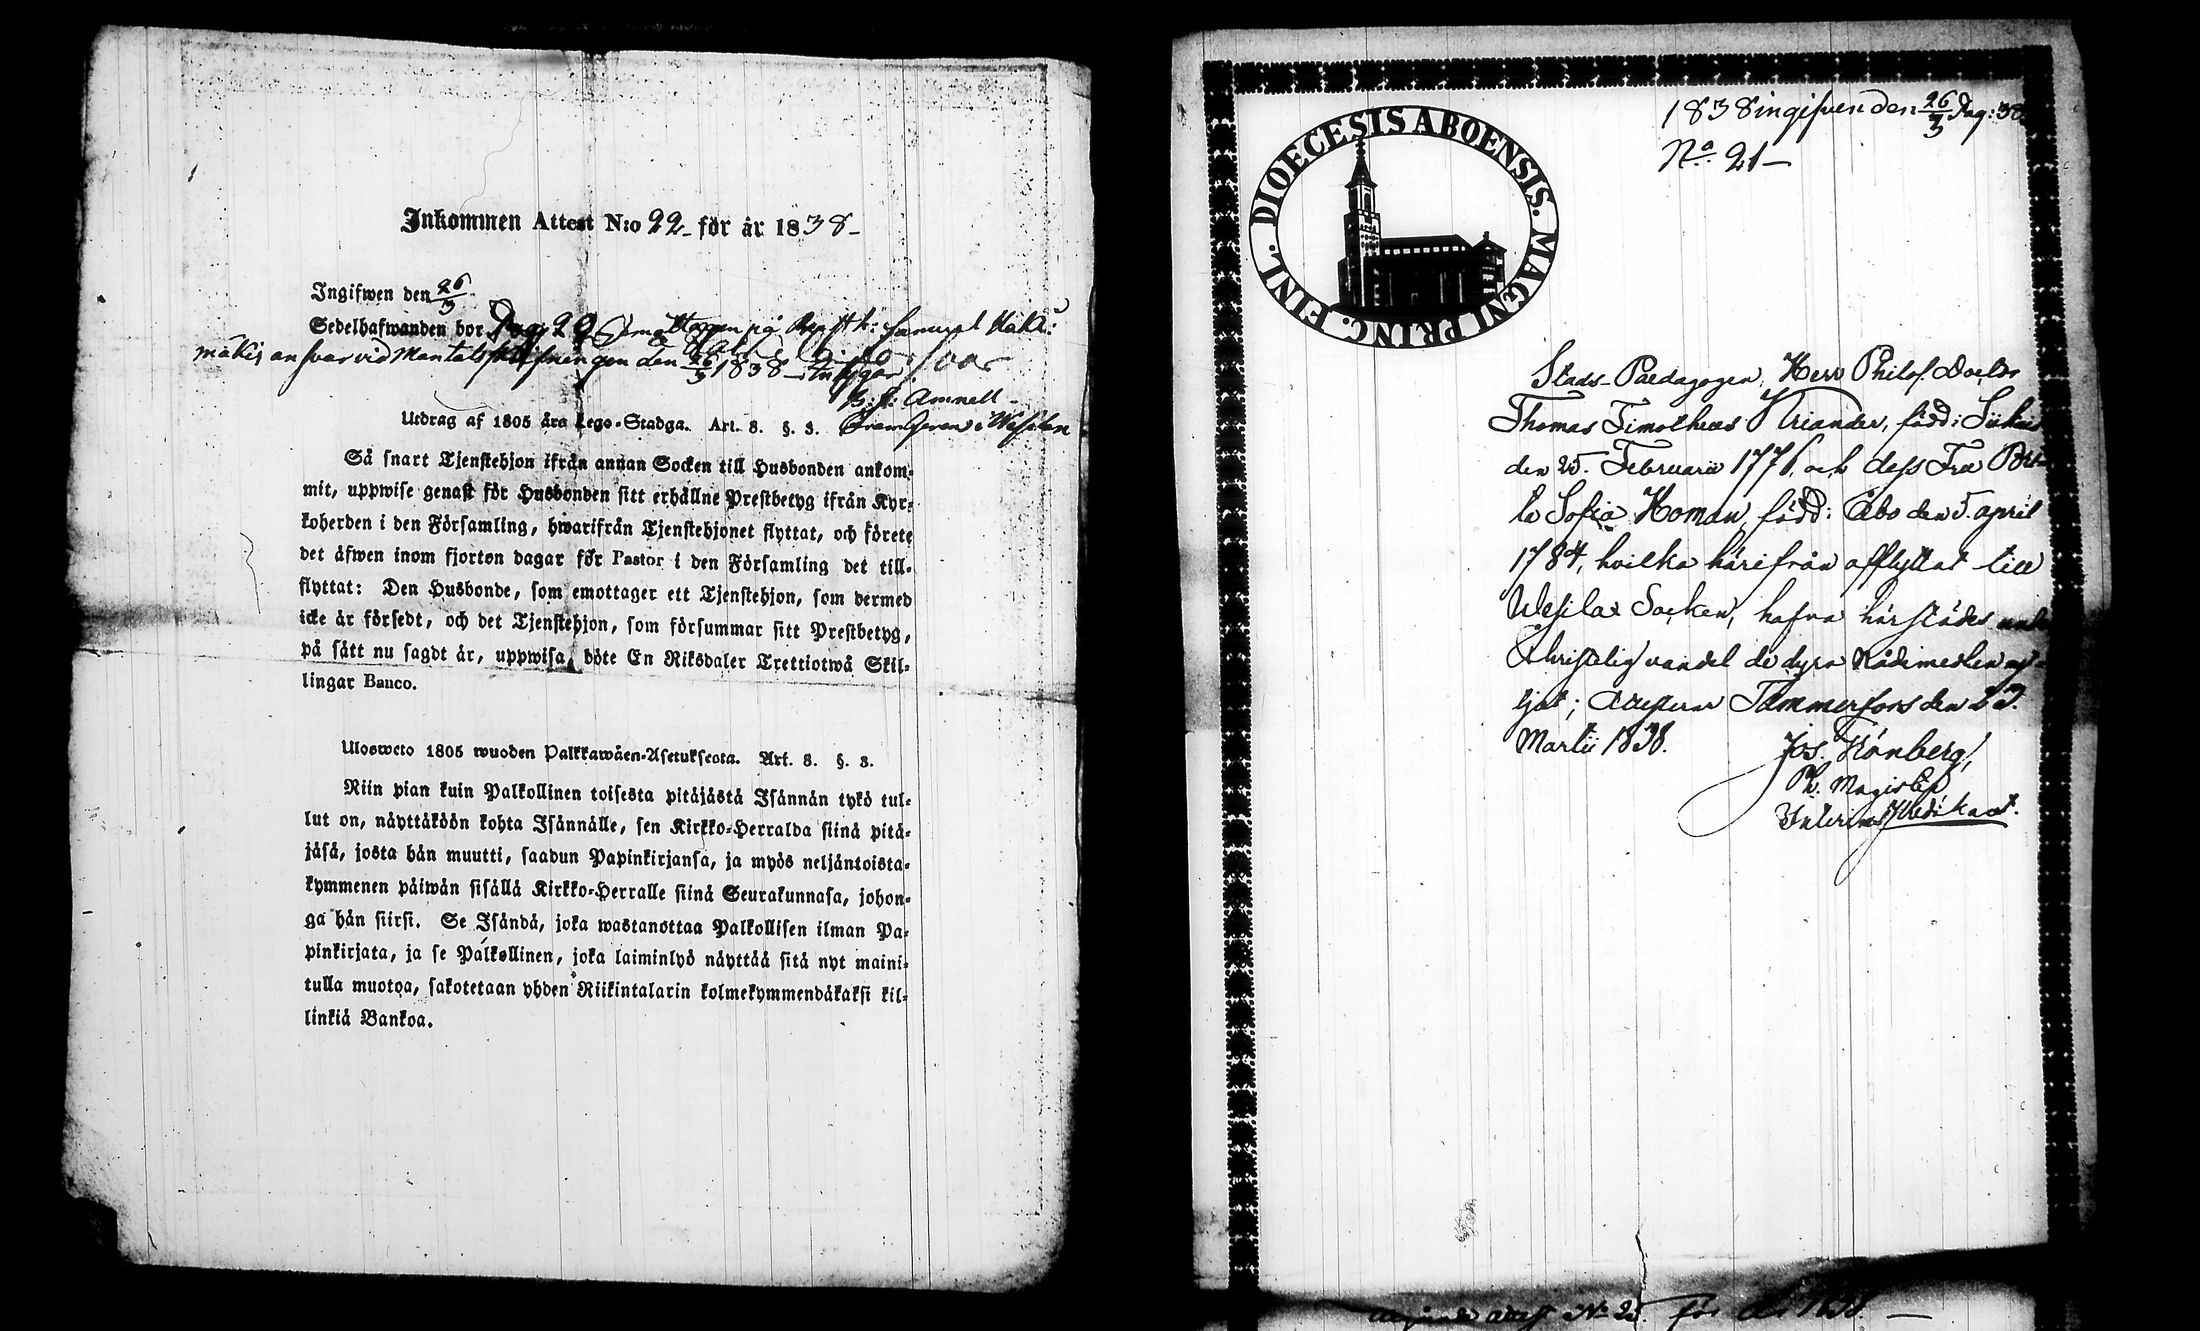 Inkommen Attest N:o 22 – för år 1838 –
Ingifwen den 26/3
Sedelhafwanden bor Pag 20 Emottagen på Samuel Håki:
mäkis ansvar vid Mantalsskrifningen den 26/3 1838 – intygar
Amnell
i Wesilax
Utdrag af 1805 års Lego-Stadga. Art. 8. §. 3.
Så snart Tjenstehjon ifrån annan Socken till Husbonden ankom-
mit, uppwise genast för Husbonden sitt erhållne Prestbetyg ifrån Kyr-
koherden i den Församling, hwarifrån Tjenstehjonet flyttat, och förete
det äfwen inom fjorton dagar för Pastor i den Församling det till-
flyttat: Den Husbonde, som emottager ett Tjenstehjon, som dermed
icke är försedt, och det Tjenstehjon, som försummar sitt Prestbetyg,
på sätt nu sagdt är, uppwisa, böte En Riksdaler Trettiotwå Skil-
lingar Banco.
Ulosweto 1805 wuoden Palkkawäen-Asetuksesta. Art. 8. §. 3.
Niin pian kuin Palkollinen toisesta pitäjästä Isännän tykö tul-
lut on, näyttäköön kohta Isännälle, sen Kirkko-Herralda siinä pitä-
jäsä, josta hän muutti, saadun Papinkirjansa, ja myös neljäntoista-
kymmenen päiwän sisällä Kirkko-Herralle siinä Seurakunnasa, johon-
ga hän siirsi. Se Isändä, joka wastanottaa Palkollisen ilman Pa-
pinkirjata, ja se Palkollinen, joka laiminlyö näyttää sitä nyt maini-
tulla muotoa, sakotetaan yhden Riikintalarin kolmekymmendäkaksi kil-
linkiä Bankoa.
1838 ingifven den 26/3 Pag: 38
No. 21 –
DIOECESIS ABOENSIS. MAGNI PRINC. FINL.
Stads-Paedagogen, Herr Philos. Doctor
Thomas Timotheus Kriander, född i
den 25. Februarii 1776, och dess Fru
la Sofia Homan, född i Åbo den 5. april
1784, hvilka härifrån afflyttat till
Wesilax Socken, hafva härstädes under
Christelig vandel de dyra Nådemedlen nyt-
tjat; attesterar Tammerfors den 23.
Martii 1838.
Jos. Grönberg,
Ph. Magister
Interims Predikant.
attest No 25. för år 1838. –